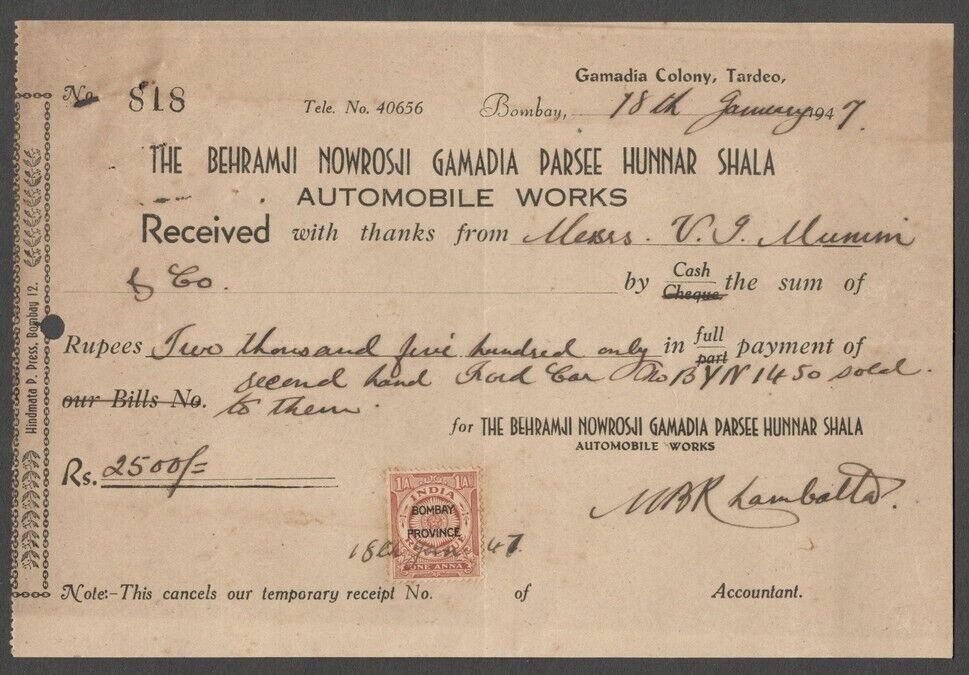 Gamadia Colony, Tardeo,
No. 818 Tele. No. 40656 Bombay, 18th January 1947.
THE BEHRAMJI NOWROSJI GAMADIA PARSEE HUNNAR SHALA
AUTOMOBILE WORKS
Received with thanks from Messrs. V. J. Munim
& Co. by Cash Cheque the sum of
Rupees Two thousand five hundred only in full part payment of
our Bills No. second hand Ford Car No BYN 1450 sold
to them.
for THE BEHRAMJI NOWROSJI GAMADIA PARSEE HUNNAR SHALA
AUTOMOBILE WORKS
Rs. 2500/=
1A 1A
INDIA
BOMBAY
PROVINCE
REVENUE
ONE ANNA
18th Jan. 47
Note:-This cancels our temporary receipt No. of Accountant.
Hindmata P. Press, Bombay 12.